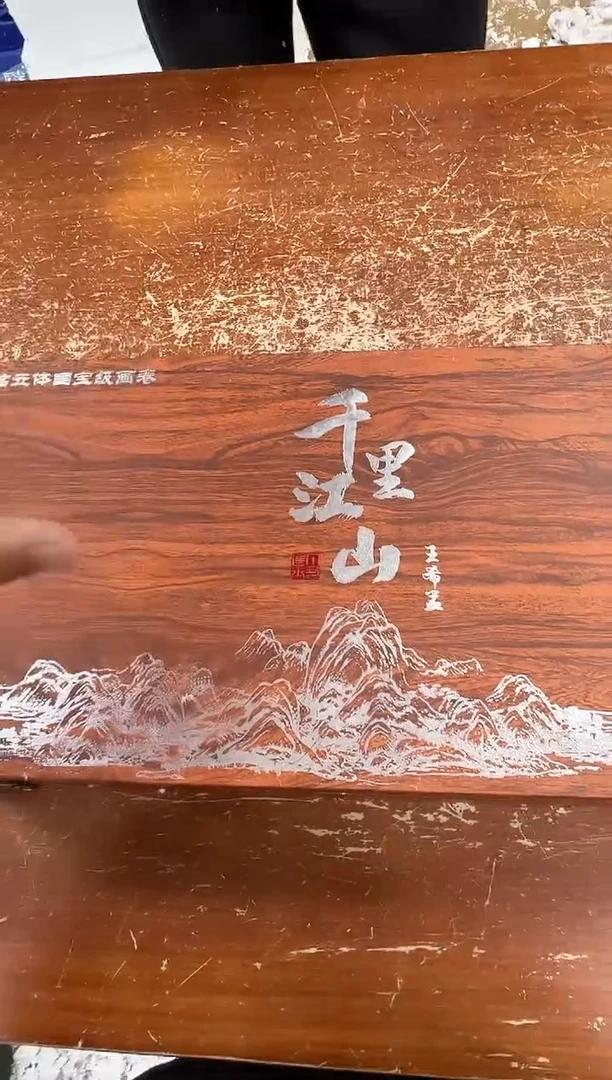 立体国宝级画卷
千里
江山
王希孟